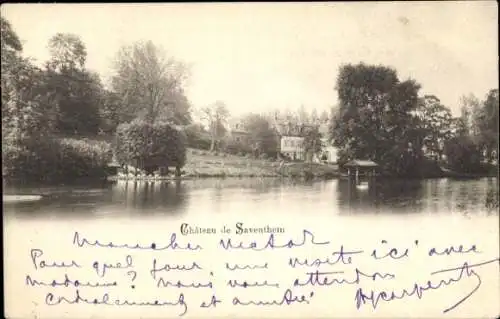 Château de Saventhem
Mon cher Victor
Pour quel jour une visite ici avec
madame? Nous vous attendons
cordialement et une amitiés
H Carpentier